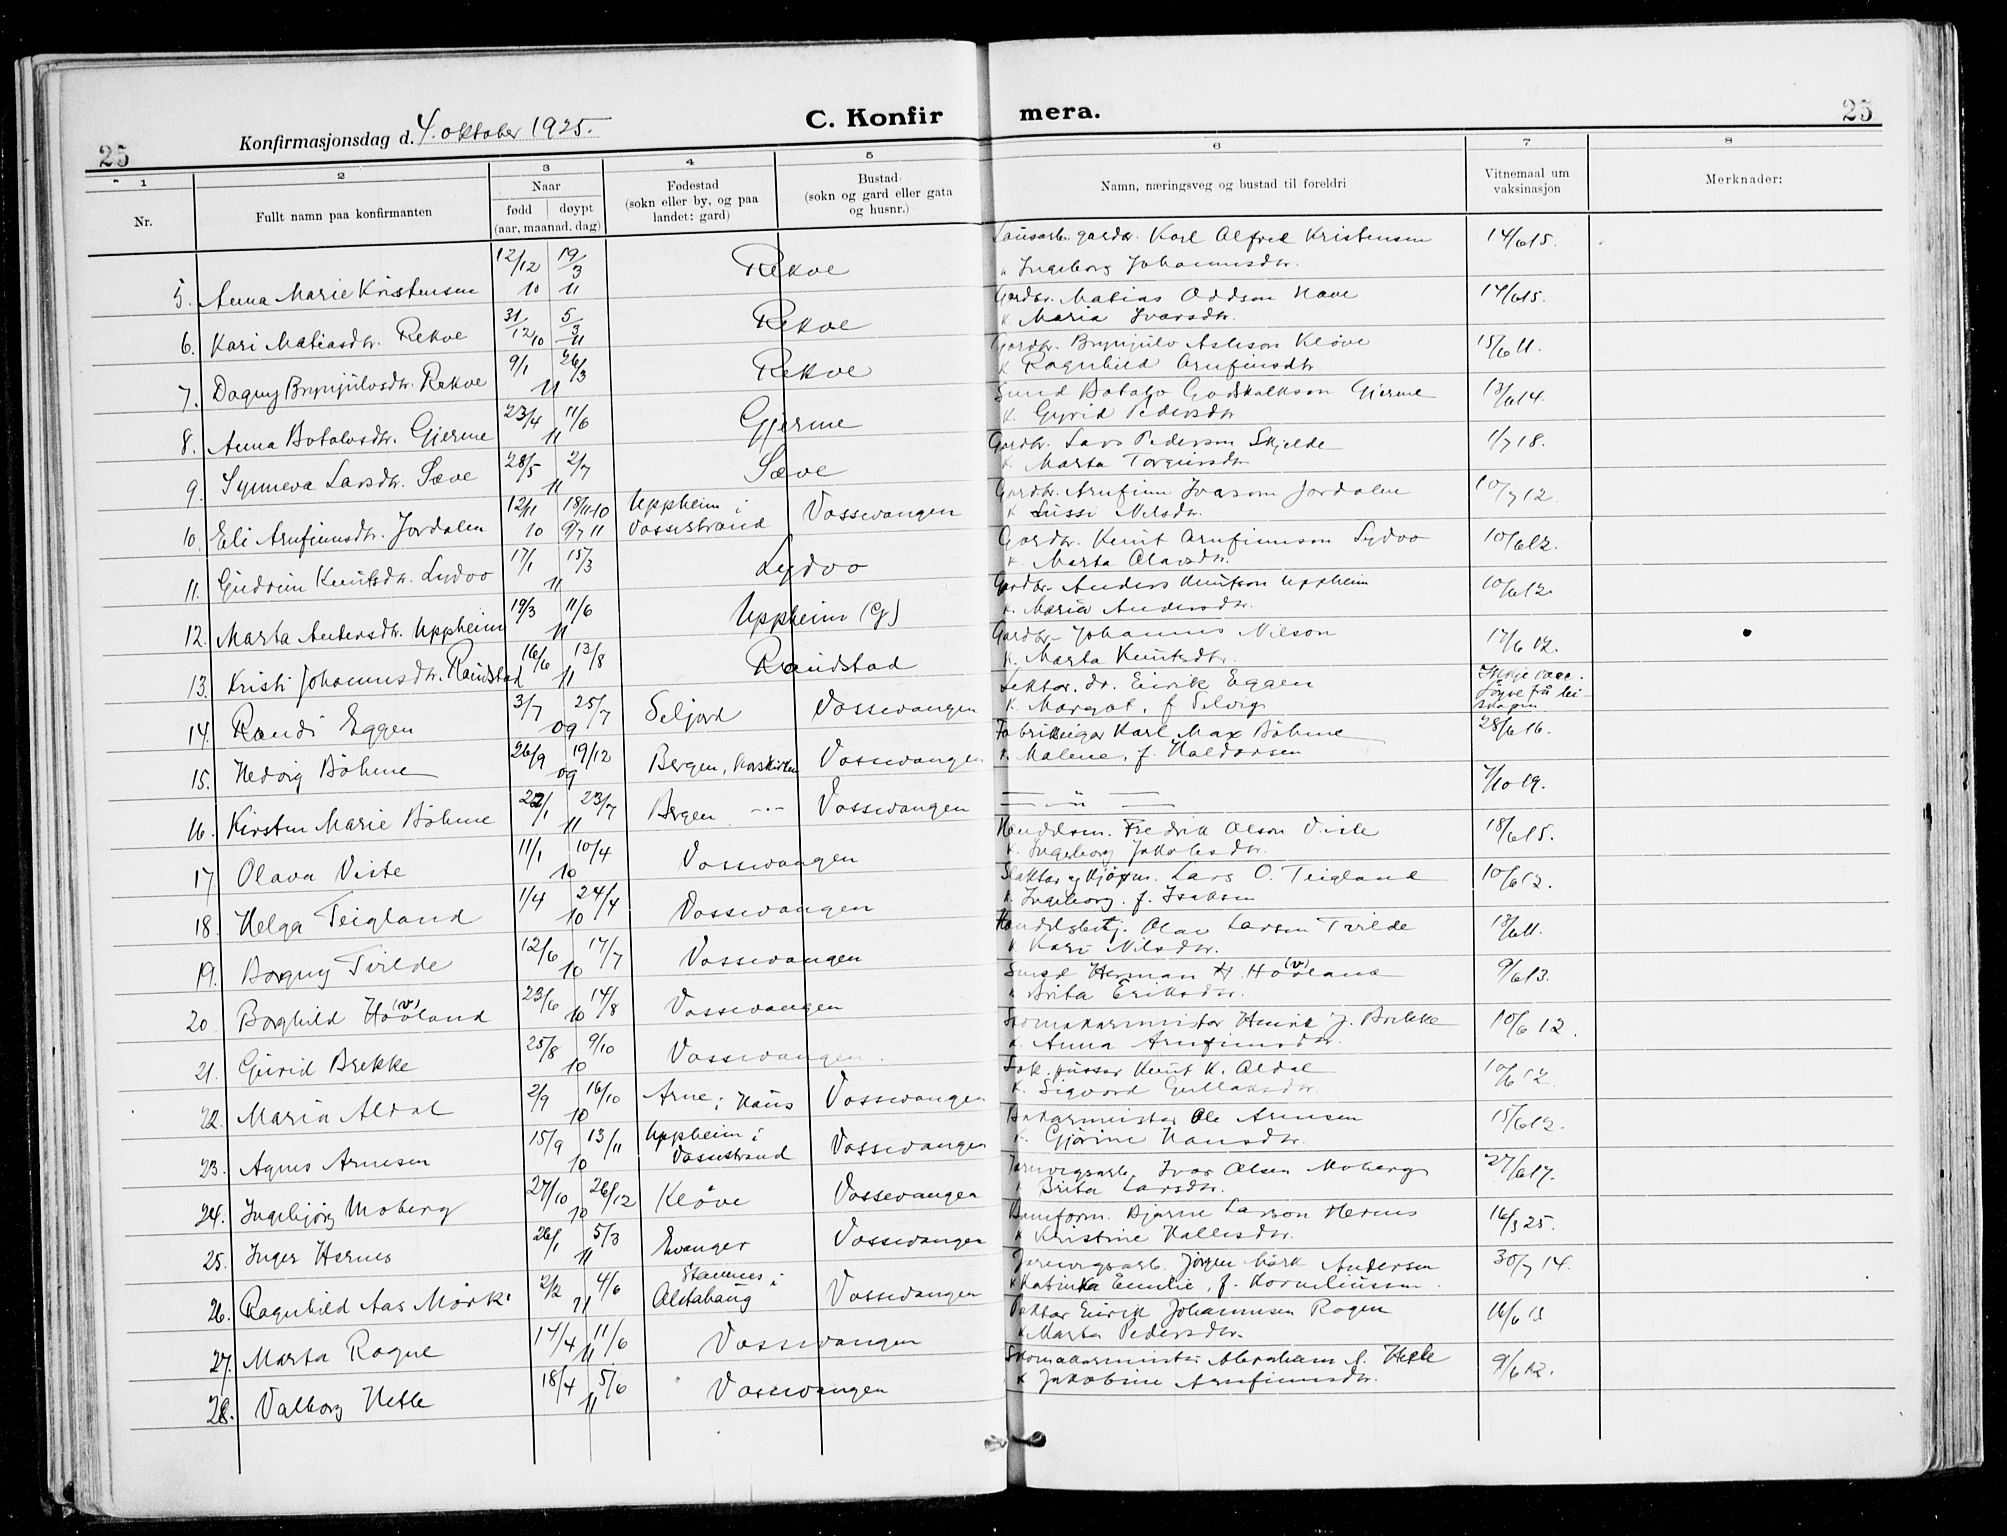 25
Konfirmasjonsdag d. 4. oktober 1925.
C. Konfir mera.
25
1 2 3 4 5 6 7 8
Nr.
Fullt namn paa konfirmanten
Naar
fødd døypt
(aar, maanad, dag)
Fødestad
(sokn eller by, og paa
landet: gard)
Bustad
(sokn og gard eller gata
og husnr.)
Namn, næringsveg og bustad til foreldri
Vitnemaal um
vaksinasjon
Merknader:
5. Anna Marie Kristensen 12/12 10 19/3 11 Rekve
Lausarb. gardbr. Karl Alfred Kristensen 14/6 15.
k. Ingeborg Johannesdtr.
6. Kari Matiasdtr. Rekve 31/12 10 5/3 11 Rekve
Gardbr. Matias Oddson Have 14/6 15.
k. Maria Ivarsdtr.
7. Dagny Brynjulvsdtr. Rekve 9/1 26/3 11 Rekve
Gardbr. Brynjulv Asleson Kløve 15/6 11.
k. Ragnhild Arnfinsdtr
8. Anna Botolvsdtr. Gjerme 23/4 11/6 11 Gjerme
Smed Botolv Godskalkson Gjerme 13/6 14.
k. Gyrid Pedersdtr
9. Synneva Larsdtr. Sæve 28/5 2/7 11 Sæve
Gardbr. Lars Pederson Skjelde 1/7 18.
k. Marta Torgeirsdtr
10. Eli Arnfinnsdtr. Jordalen 12/11 10 18/11-10 9/7 11 Uppheim i Vossestrand Vossevangen
Gardbr. Arnfinn Ivarson Jordalen 10/7 12.
k. Sissi Nilsdtr.
11. Gudrun Knutsdr. Lydvo 17/1 15/3 11 Lydvo
Gardbr. Knut Arnfinnson Lydvo 10/6 12.
k. Marta Olavsdtr.
12. Marta Andersdtr. Uppheim 19/3 11/6 11 Uppheim (G)
Gardbr. Anders Knutson Uppheim 10/6 12.
k. Maria Andersdtr.
13. Kristi Johannesdtr. Raundstad 16/6 13/8 11 Raundstad
Gardbr. Johannes Nilson 17/6 12.
k. Marta Knutsdtr.
14. Randi Eggen 3/7 25/7 09 Seljord Vossevangen
Lektor. dr. Eirik Eggen Ikkje
k. Margot, f. Selvig
15. Hedvig Böhme 26/9 19/12 09 Bergen, Korskirken Vossevangen
Fabrikeigar Karl Max Böhme 28/6 16.
k. Malene, f. Haldorsen
16. Kirsten Marie Böhme 22/1 23/7 11 Bergen -"- Vossevangen
— " — 7/10 19.
17 Olava Viste 11/1 10/4 10 Vossevangen
Handelsm. Fredrik Olson Viste 18/6 15.
k. Ingeborg Jakobsdtr.
18. Helga Teigland 1/4 24/4 10 Vossevangen
Slaktar og kjøpm. Lars O. Teigland 10/6 12.
k. Ingeborg. f. Isaksen
19. Borgny Tvilde 12/6 17/7 10 Vossevangen
Handelsbetj. Olav Larsen Tvilde 13/6 11.
k. Kari Nilsdtr.
20 Borghild Hovland (v) 23/6 14/8 10 Vossevangen
Smed Herman H. Hovland (v) 9/6 13.
k. Brita Eriksdtr.
21. Gurid Brekke 25/8 9/10 10 Vossevangen.
Skomakarmeister Henrik J. Brekke 10/6 12.
k. Anna Arnfinnsdtr.
22. Maria Aldal 2/9 16/10 10 Arne i Haus Vossevangen
Knut K. Aldal 10/6 12
k. Sigvord Gullaksdtr.
23. Agnes Arnesen 15/9 13/11 10 Uppheim i Vossestrand Vossevangen
Bakarmeister Ole Arnesen 15/6 12.
k. Gjørine Hansdtr.
24. Ingebjørg Moberg 27/10 26/12 10 Kløve Vossevangen
Jarnvegsarb. Ivar Olsen Moberg 27/6 17.
k. Brita Larsdtr.
25. Inger Hernes 26/1 5/3 11 Evanger Vossevangen
Banform. Bjarne Larson Hernes 16/3 25.
k. Kristine Hallesdtr.
26. Ragnhild Aas Mørk 2/2 4/6 11 Stamnes i Alstahaug Vossevangen
Jarnvegsarb. Jørgen Mørk Andersen 30/7 14.
k. Katinka Emilie, f. Korneliussen
27. Marta Rogne 14/4 11/6 11 Vossevangen
Eirik Johannesen Rogne 16/6 13
k. Marta Pedersdtr.
28. Valborg Hetle 18/4 5/6 11 Vossevangen
Skomakarmeister Abraham A. Hetle 9/6 12.
k. Jakobine Arnfinnsdtr.